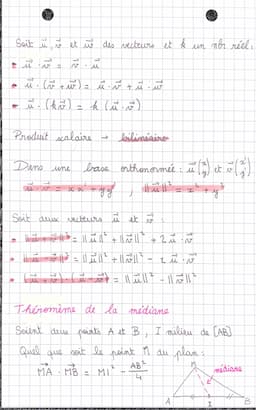 Soit u⃗, v⃗ et w⃗ des vecteurs et k un nbr réel:
• u⃗ · v⃗ = v⃗ · u⃗
• u⃗ · (v⃗ + w⃗) = u⃗ · v⃗ + u⃗ · w⃗
• u⃗ · (kv⃗) = k (u⃗ · v⃗)
Produit scalaire → bilinéaire
Dans une base orthonormée: u⃗ (x y) et v⃗ (x' y')
u⃗ · v⃗ = xx' + yy' , ||u⃗||² = x² + y²
Soit deux vecteurs u⃗ et v⃗ :
• ||u⃗ + v⃗||² = ||u⃗||² + ||v⃗||² + 2 u⃗ · v⃗
• ||u⃗ - v⃗||² = ||u⃗||² + ||v⃗||² - 2 u⃗ · v⃗
• (u⃗ + v⃗) · (u⃗ - v⃗) = ||u⃗||² - ||v⃗||²
Théorème de la médiane
Soient deux points A et B, I milieu de [AB]
Quel que soit le point M du plan:
MA⃗ · MB⃗ = MI² - AB²/4
M
médiane
A I B